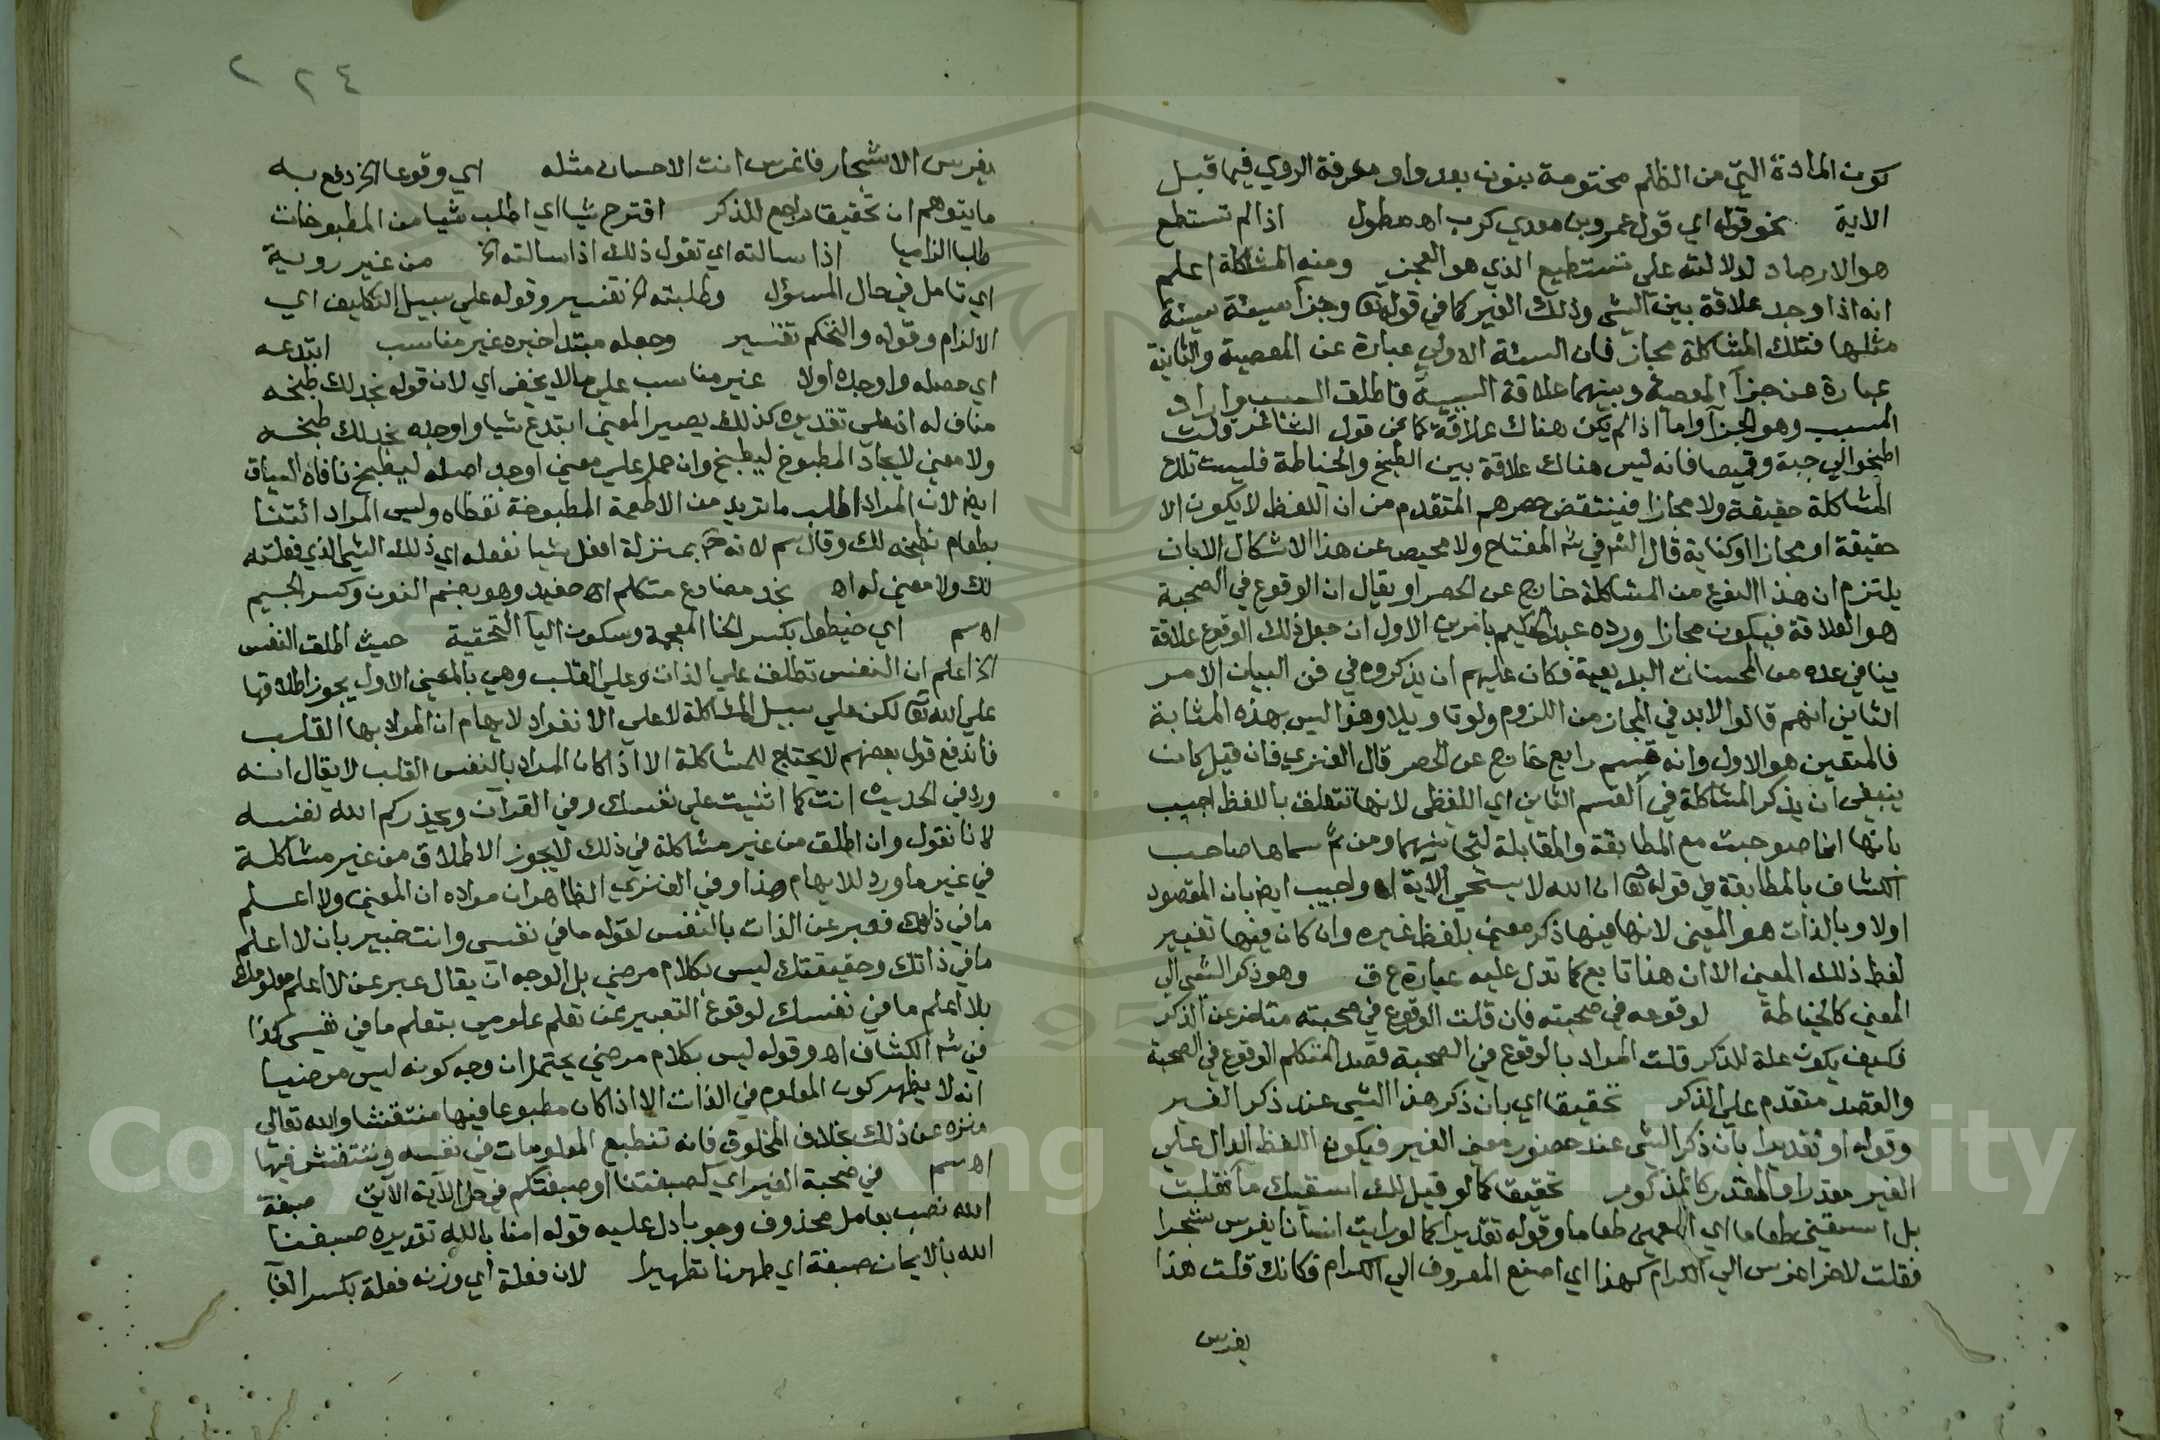 كون المادة التي من الظلم مختومة بنون بعد واو معرفة الروي فيما قبل
الاية نحو قوله اي قول عمرو بن معدي كرب اه مطول اذا لم تستطع
هو الارصاد لدلالته على تستطيع الذي هو العجز ومنه المشاكلة اعلم
انه اذا وجد علاقة بين الشي وذلك الغير كما في قوله تعا وجزآ سيئة سيئة
مثلها فتلك المشاكلة مجاز فان السيئة الاولي عبارة عن المعصية والثانية
عبارة عن جزآ المعصية وبينهما علاقة السببية فاطلق السبب واراد
المسبب وهو الجزآ واما اذا لم يكن هناك علاقة كما في قول الشاعر قلت
اطبخوا لي جبة وقميصا فانه ليس هناك علاقة بين الطبخ والخياطة فليست تلك
المشاكلة حقيقة ولا مجازا فينتقض حصرهم المتقدم من ان اللفظ لا يكون الا
حقيقة او مجازا او كناية قال الش في ش المفتاح ولا محيص عن هذا الاشكال الا بان
يلتزم ان هذا النوع من المشاكلة خارج عن الحصر او يقال ان الوقوع في الصحبة
هو العلاقة فيكون مجازا ورده عبد الحكيم بامرين الاول ان جعل ذلك الوقوع علاقة
ينافي عده من المحسنات البديعية فكان عليهم ان يذكروه في فن البيان الامر
الثاني انهم قالوا لابد في المجاز من اللزوم ولو تاويلا وهذا ليس بهذه المثابة
فالمتعين هو الاول وانه قسم رابع خارج عن الحصر قال الفنري فان قيل كان
ينبغي ان يذكر المشاكلة في القسم الثاني اي اللفظي لانها تتعلق باللفظ اجيب
بانها انما صوحبت مع المطابقة والمقابلة لتجانسهما ومن ثم سماها صاحب
الكشاف بالمطابقة في قوله تعا ان الله لا يستحي الآية اه واجيب ايض بان المقصود
اولا وبالذات هو المعنى لانها فيها ذكر معنى بلفظ غيره وان كان فيها تغيير
لفظ ذلك المعنى الا ان هذا تابع كما تدل عليه عبارة ع ق وهو ذكر الشي اي
المعنى كالخياطة لوقوعه في صحبته فان قلت الوقوع في صحبته متاخر عن الذكر
فكيف يكون علة للذكر قلت المراد بالوقوع في الصحبة قصد المتكلم الوقوع في الصحبة
والقصد متقدم على الذكر تحقيقا اي بان ذكر هذا الشي عند ذكر الغير
وقوله او تقديرا بان ذكر الشي عند حضور معنى الغير فيكون اللفظ الدال على
الغير مقدرا والمقدر كالمذكور تحقيقا كما لو قيل لك اسقيك ما فقلت
بل اسقيني طعاما اي اطعمني طعاما وقوله تقديرا كما لو رايت انسانا يغرس شجرا
فقلت لاخر اغرس الي الكرام كهذا اي اصنع المعروف الي الكرام فكانك قلت هذا
يغرس
٢٢٤
يغرس الاشجار فاغرس انت الاحسان مثله اي وقوعا الخ دفع به
ما يتوهم ان تحقيقا راجع للذكر اقترح شيا اي اطلب شيا من المطبوخات
طلبا الزاميا اذا سالته اي تقول ذلك اذا سالته الخ من غير روية
اي تامل في حال المسؤل وطلبته الخ تفسير وقوله على سبيل التكليف اي
الالزام وقوله والتحكم تفسير وجعله مبتدا خبره غير مناسب ابتدعه
اي حصله واوجده اولا غير مناسب على ما لا يخفى اي لان قوله نجد لك طبخه
مناف له اذ على تقديره كذلك يصير المعنى ابتدع شيا واوجده نجد لك طبخه
ولا معنى لايجاد المطبوخ ليطبخ وان حمل على معنى اوجد اصله ليطبخ نافاه السياق
ايض لان المراد اطلب ما تريد من الاطعمة المطبوخة نعطاه وليس المراد ائتنا
بطعام نطبخه لك وقال سم لانه ح بمنزلة افعل شيا نفعله اي ذلك الشي الذي فعلته
لك ولا معنى له اه نجد مضارع متكلم اه حفيد وهو بضم النون وكسر الجيم
اه سم اي خيطوا بكسر الخا المعجمة وسكون اليآ التحتية حيث اطلق النفس
الخ اعلم ان النفس تطلق على الذات وعلى القلب وهي بالمعنى الاول يجوز اطلاقها
على الله تعا لكن على سبيل المشاكلة لا على الانفراد لايهام ان المراد بها القلب
فاندفع قول بعضهم لا يحتاج للمشاكلة الا اذا كان المراد بالنفس القلب لا يقال انه
ورد في الحديث انت كما اثنيت على نفسك وفي القرآن ويحذركم الله نفسه
لانا نقول وان اطلق من غير مشاكلة في ذلك لا يجوز الاطلاق من غير مشاكلة
في غير ما ورد للايهام هذا وفي الفنري الظاهر ان مراده ان المعنى ولا اعلم
ما في ذاتك فعبر عن الذات بالنفس لقوله ما في نفسي وانت خبير بان لا اعلم
ما في ذاتك وحقيقتك ليس بكلام مرضي بل الوجه ان يقال عبر عن لا اعلم معلومك
بلا اعلم ما في نفسك لوقوع التعبير عن تعلم معلومي بتعلم ما في نفسي كذا
في ش الكشاف اه وقوله ليس بكلام مرضي يحتمل ان وجه كونه ليس مرضيا
انه لا يظهر كون المعلوم في الذات الا اذا كان مطبوعا فيها منتقشا والله تعالي
منزه عن ذلك بخلاف المخلوق فانه تنطبع المعلومات في نفسه وتنتقش فيها
اه سم في صحبة الغير اي كصبغتنا او صبغتكم في حل الآية الآتي صبغة
الله نصب بعامل محذوف وجوبا دل عليه قوله امنا بالله تقديره صبغنا
الله بالايمان صبغة اي طهرنا تطهيرا لان فعلة اي وزنه فعلة بكسر الفآ